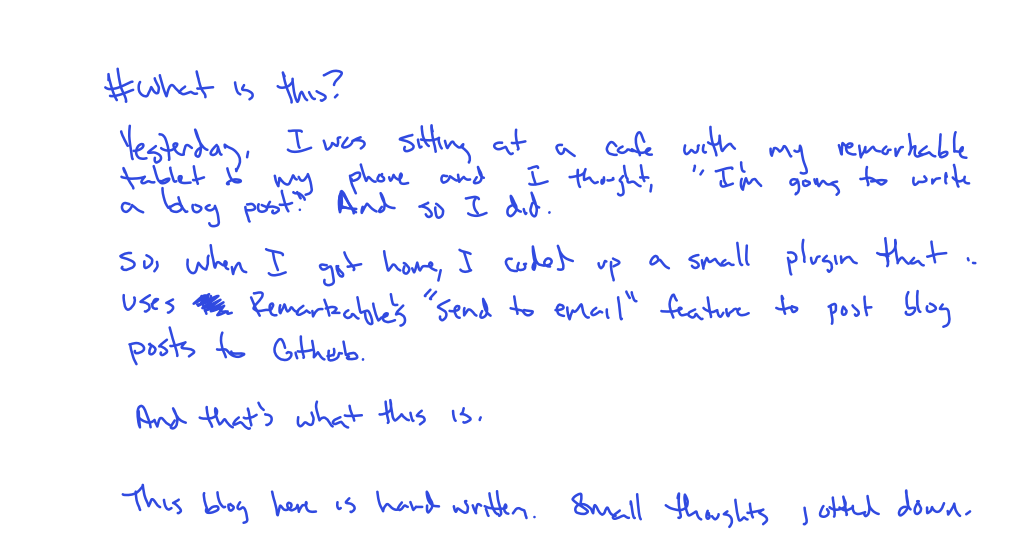 #What is this?
Yesterday, I was sitting at a cafe with my remarkable
tablet & my phone and I thought, "I'm going to write
a blog post." And so I did.
So, when I got home, I coded up a small plugin that
uses Remarkable's "send to email" feature to post blog
posts to Github.
And that's what this is.
This blog here is hand written. Small thoughts jotted down.